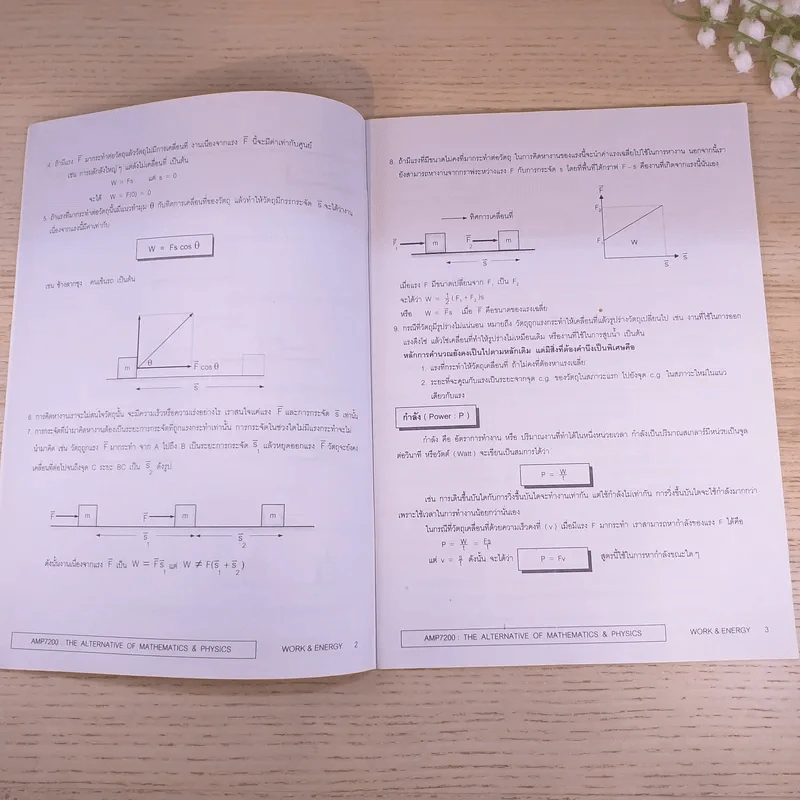 4. ถ้ามีแรง F̅ มากระทำต่อวัตถุแล้ววัตถุไม่มีการเคลื่อนที่ งานเนื่องจากแรง F̅ นี้จะมีค่าเท่ากับศูนย์
เช่น การผลักตึกใหญ่ๆ แต่ตึกไม่เคลื่อนที่ เป็นต้น
W = Fs แต่ s = 0
จะได้ W = F(0) = 0
5. ถ้าแรงที่มากระทำต่อวัตถุนั้นมีแนวทำมุม θ กับทิศการเคลื่อนที่ของวัตถุ แล้วทำให้วัตถุมีการกระจัด s̅ จะได้ว่างาน
เนื่องจากแรงนี้มีค่าเท่ากับ
W = Fs cos θ
เช่น ช้างลากซุง คนเข็นรถ เป็นต้น
m
θ
F̅ cos θ
s̅
6. การคิดหางานเราจะไม่สนใจวัตถุนั้น จะมีความเร็วหรือความเร่งอย่างไร เราสนใจแต่แรง F̅ และการกระจัด s̅ เท่านั้น
7. การกระจัดที่นำมาคิดหางานต้องเป็นระยะการกระจัดที่ถูกแรงกระทำเท่านั้น การกระจัดในช่วงใดไม่มีแรงกระทำจะไม่
นำมาคิด เช่น วัตถุถูกแรง F̅ มากระทำ จาก A ไปถึง B เป็นระยะการกระจัด s̅₁ แล้วหยุดออกแรง F̅ วัตถุจะยังคง
เคลื่อนที่ต่อไปจนถึงจุด C ระยะ BC เป็น s̅₂ ดังรูป
F̅ m F̅ m m
s̅₁ s̅₂
ดังนั้นงานเนื่องจากแรง F̅ เป็น W = F̅s̅₁ แต่ W ≠ F(s̅₁ + s̅₂)
AMP7200 : THE ALTERNATIVE OF MATHEMATICS & PHYSICS
WORK & ENERGY 2
8. ถ้ามีแรงที่มีขนาดไม่คงที่มากระทำต่อวัตถุ ในการคิดหางานของแรงนี้จะนำค่าแรงเฉลี่ยไปใช้ในการหางาน นอกจากนี้เรา
ยังสามารถหางานจากกราฟระหว่างแรง F กับการกระจัด s โดยที่พื้นที่ใต้กราฟ F - s คืองานที่เกิดจากแรงนี้นั่นเอง
ทิศการเคลื่อนที่
F̅₁ m F̅₂ m
s̅
F̅
F₂
F₁
W
s̅ s̅
เมื่อแรง F มีขนาดเปลี่ยนจาก F₁ เป็น F₂
จะได้ว่า W = ½ ( F₁ + F₂ )s
หรือ W = F̅s เมื่อ F̅ คือขนาดของแรงเฉลี่ย
9. กรณีที่วัตถุมีรูปร่างไม่แน่นอน หมายถึง วัตถุถูกแรงกระทำให้เคลื่อนที่แล้วรูปร่างวัตถุเปลี่ยนไป เช่น งานที่ใช้ในการออก
แรงดึงโซ่ แล้วโซ่เคลื่อนที่ทำให้รูปร่างไม่เหมือนเดิม หรืองานที่ใช้ในการสูบน้ำ เป็นต้น
หลักการคำนวณยังคงเป็นไปตามหลักเดิม แต่มีสิ่งที่ต้องคำนึงเป็นพิเศษคือ
1. แรงที่กระทำให้วัตถุเคลื่อนที่ ถ้าไม่คงที่ต้องหาแรงเฉลี่ย
2. ระยะที่จะคูณกับแรงเป็นระยะจากจุด c.g. ของวัตถุในสภาวะแรก ไปยังจุด c.g. ในสภาวะใหม่ในแนว
เดียวกับแรง
กำลัง ( Power : P )
กำลัง คือ อัตราการทำงาน หรือ ปริมาณงานที่ทำได้ในหนึ่งหน่วยเวลา กำลังเป็นปริมาณสเกลาร์มีหน่วยเป็นจูล
ต่อวินาที หรือวัตต์ ( Watt ) จะเขียนเป็นสมการได้ว่า
P = W/t
เช่น การเดินขึ้นบันไดกับการวิ่งขึ้นบันไดจะทำงานเท่ากัน แต่ใช้กำลังไม่เท่ากัน การวิ่งขึ้นบันไดจะใช้กำลังมากกว่า
เพราะใช้เวลาในการทำงานน้อยกว่านั่นเอง
ในกรณีที่วัตถุเคลื่อนที่ด้วยความเร็วคงที่ ( v ) เมื่อมีแรง F มากระทำ เราสามารถหากำลังของแรง F ได้คือ
P = W/t = Fs/t
แต่ v = s/t ดังนั้น จะได้ว่า P = Fv สูตรนี้ใช้ในการหากำลังขณะใดๆ
AMP7200 : THE ALTERNATIVE OF MATHEMATICS & PHYSICS
WORK & ENERGY 3